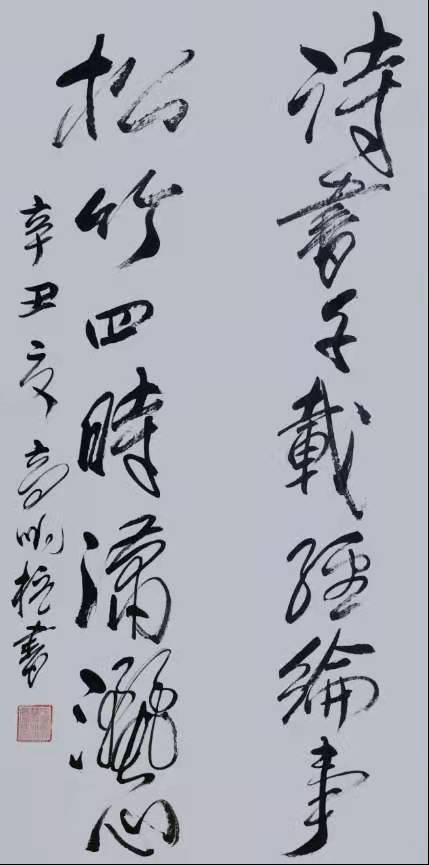 詩書千載經綸事
松竹四時瀟灑心
辛丑夏 高明 書